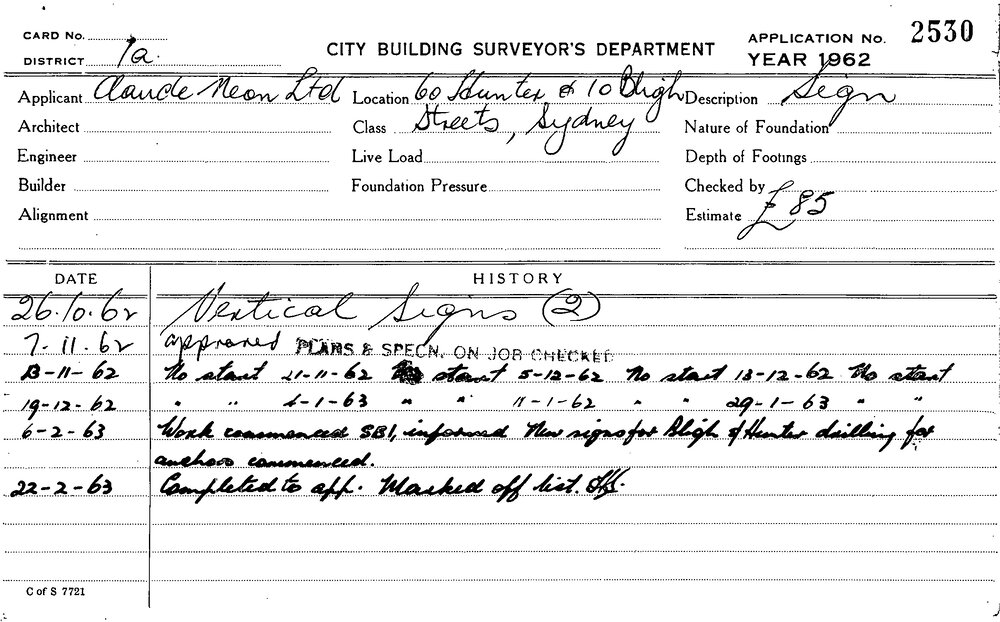 CARD No.
DISTRICT 1a.
CITY BUILDING SURVEYOR'S DEPARTMENT
APPLICATION No. 2530
YEAR 1962
Applicant Claude Neon Ltd Location 60 Hunter & 10 Bligh Description Sign
Architect Class Streets, Sydney Nature of Foundation
Engineer Live Load Depth of Footings
Builder Foundation Pressure Checked by
Alignment Estimate £85
DATE HISTORY
26.10.62 Vertical Signs (2)
7.11.62 approved PLANS & SPECN. ON JOB CHECKED
13-11-62 No start 21-11-62 No start 5-12-62 No start 13-12-62 No start
19-12-62 " " 4-1-63 " " 11-1-62 " " 29-1-63 " "
6-2-63 Work commenced SBI, informed New signs for Bligh & Hunter drilling for
anchors commenced.
22-2-63 Completed to app. Marked off list.
C of S 7721